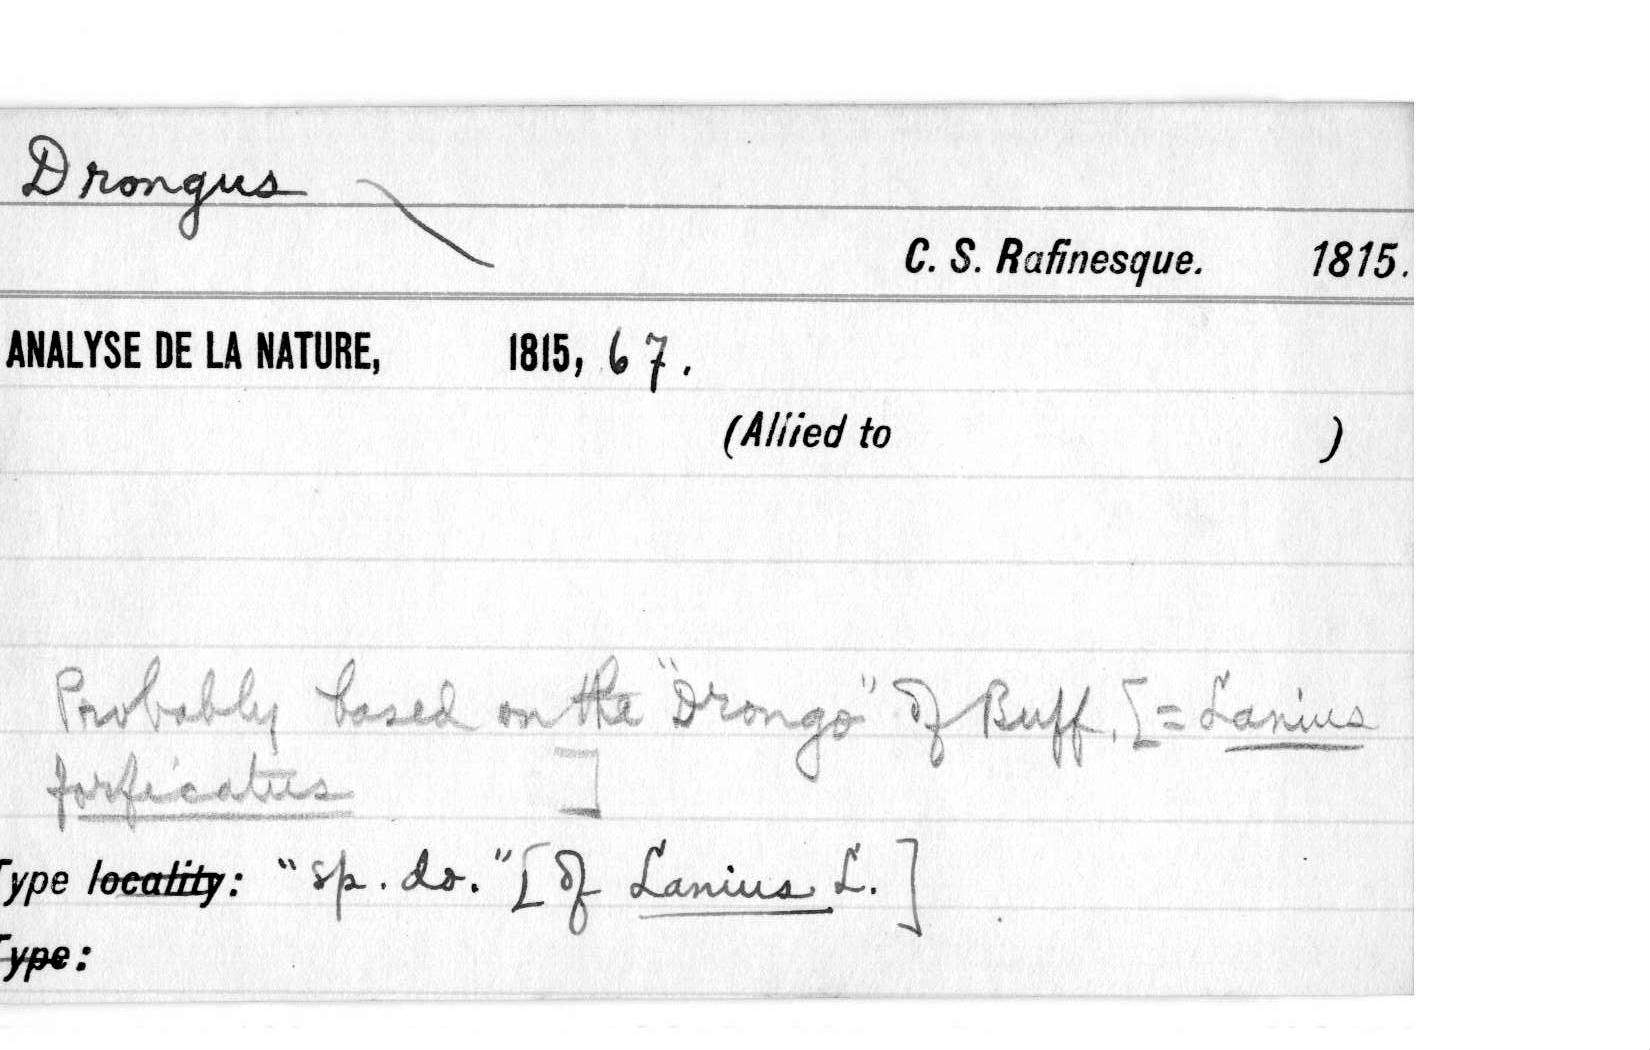 Drongus
C. S. Rafinesque. 1815.
ANALYSE DE LA NATURE, 1815, 67.
(Allied to )
Probably based on the "Drongo" of Buff. [= Lanius
forficatus ]
Type locality: "sp. do." [of Lanius L.]
Type: